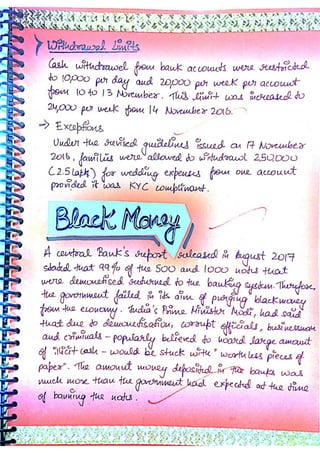 Withdrawal limits
Cash withdrawal from bank accounts were restricted
to 10,000 per day and 20,000 per week per account
from 10 to 13 November. This limit was increased to
24,000 per week from 14 November 2016.
→ Exceptions
Under the revised guidelines issued on 17 November
2016, families were allowed to withdraw 250,000
(2.5 lakh) for wedding expenses from one account
provided it was KYC complinant.
Black Money
A central Bank's report released in August 2017
stated that 99% of the 500 and 1000 notes that
were demonetised returned to the banking system. Therefore,
the government failed in its aim of purging black money
from the economy. India's Prime Minister Modi, had said
that due to demonetisation, corrupt officials, businessmen
and criminals - popularly believed to hoard large amount
of "illicit cash - would be stuck with" worthless pieces of
paper". The amount money deposited in the banks was
much more than the government had expected at the time
of banning the notes.